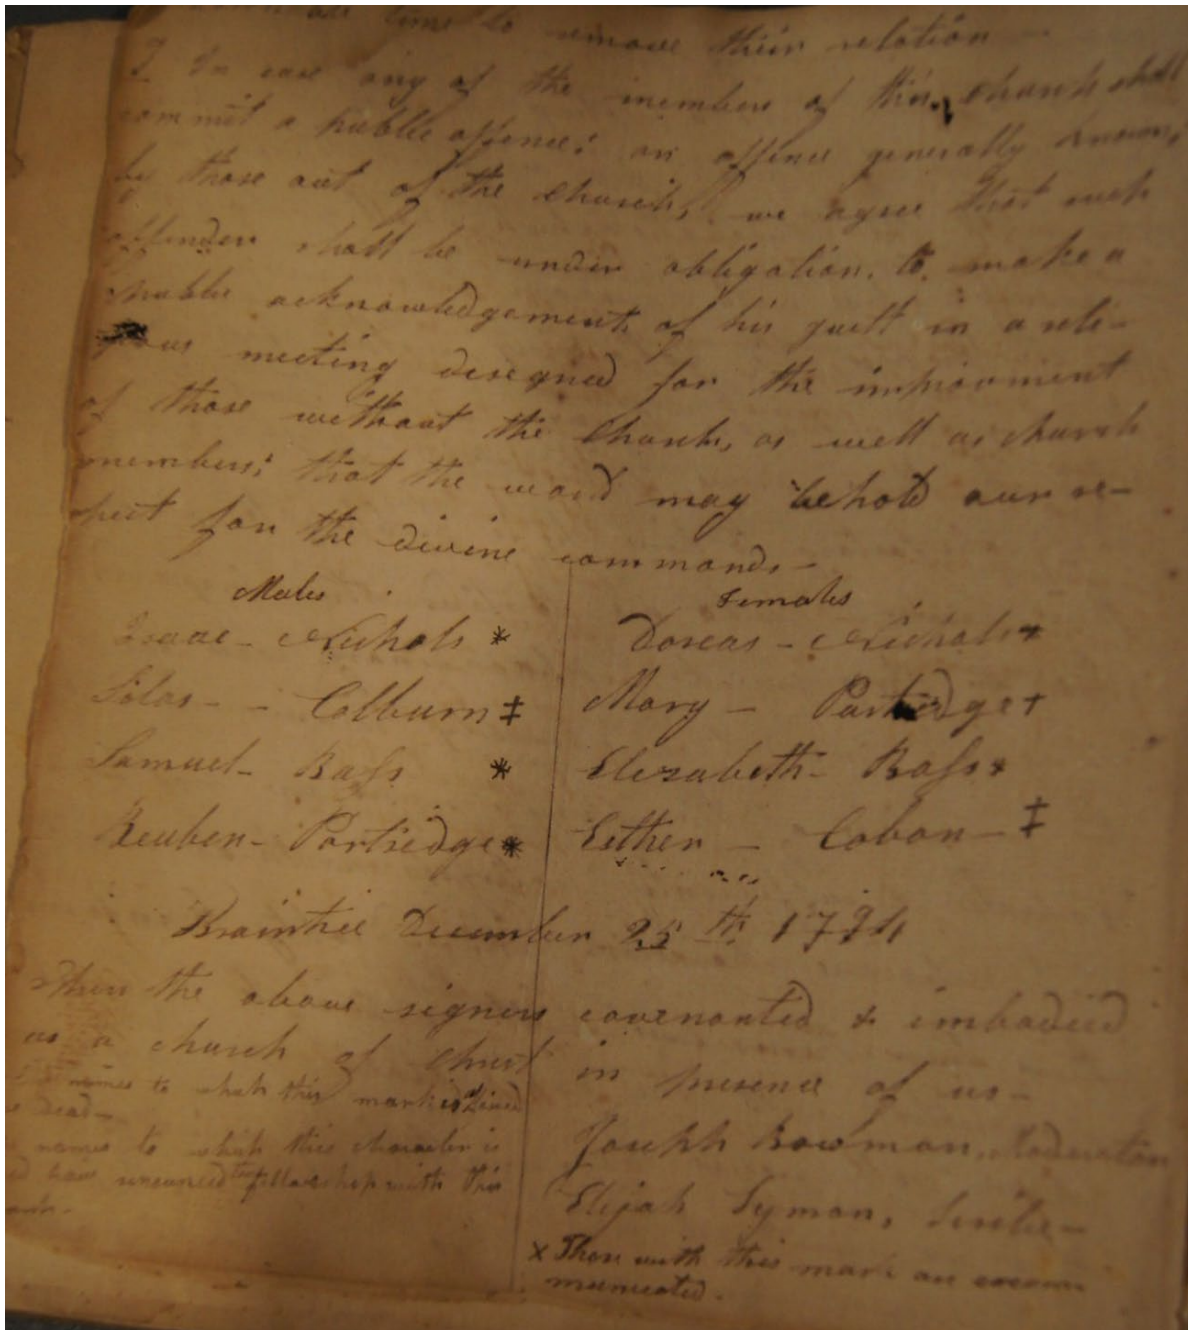 time to remove thiir relation —
I In case any of the members of this church shall
commit a public offence; or offence generally known,
by those out of the church, we agree that such
offender shall be under obligation, to make a
public acknowledgement of his guilt in a reli-
gious meeting designed for the improvment
of those without the Church, as well as church
members; that the world may behold our re-
spect for the divine commands —
Males
Isaac - Nichols *
Silas - - Colburn ‡
Samuel - Bass *
Reuben - Partridge *
Females
Dorcas - Nichols *
Mary - Partridge +
Elizabeth - Bass *
Esther - Cobon - ‡
Braintree December 25th 1794
When the above signers covenanted & imbodied
as a church of Christ in presence of us -
Joseph Bowman, Moderator
Elijah Lyman, Scribe -
names to which this mark is joined
dead -
names to which this character is
have renounced fellowship with this
x Those with this mark are excom-
municated.